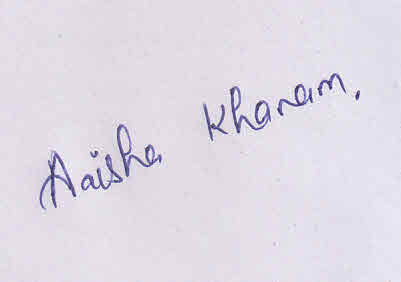 Aaisha Khanam.